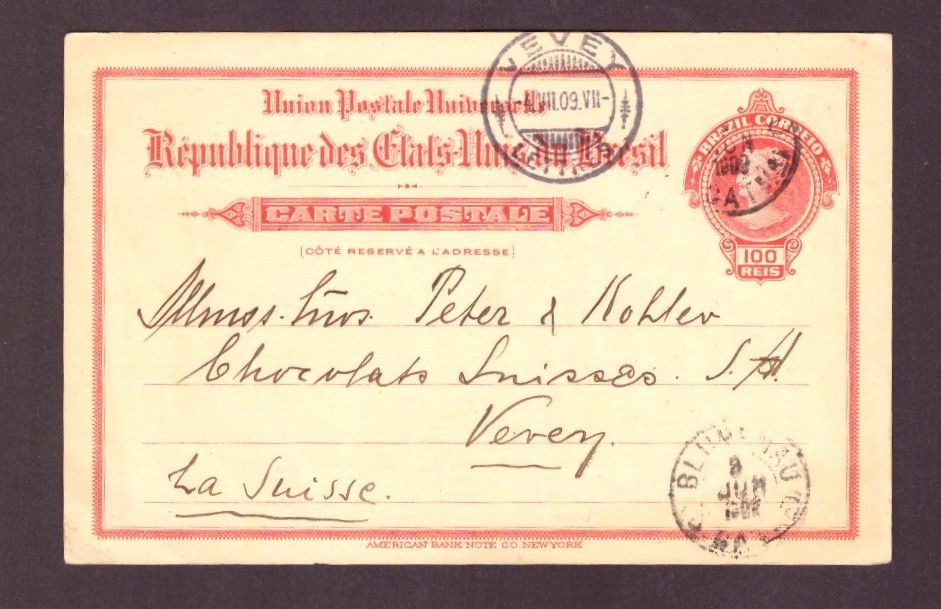 VEVEY
VII.09.VII-
Union Postale Universelle
République des Etats-Unis du Brésil
BRAZIL CORREIO
CARTE POSTALE
(CÔTÉ RESERVÉ A L'ADRESSE)
100
REIS
Peter & Kohler
Chocolats Suisses. S.A.
Vevey.
La Suisse.
BLUMENAU
JUN
AMERICAN BANK NOTE CO. NEW YORK